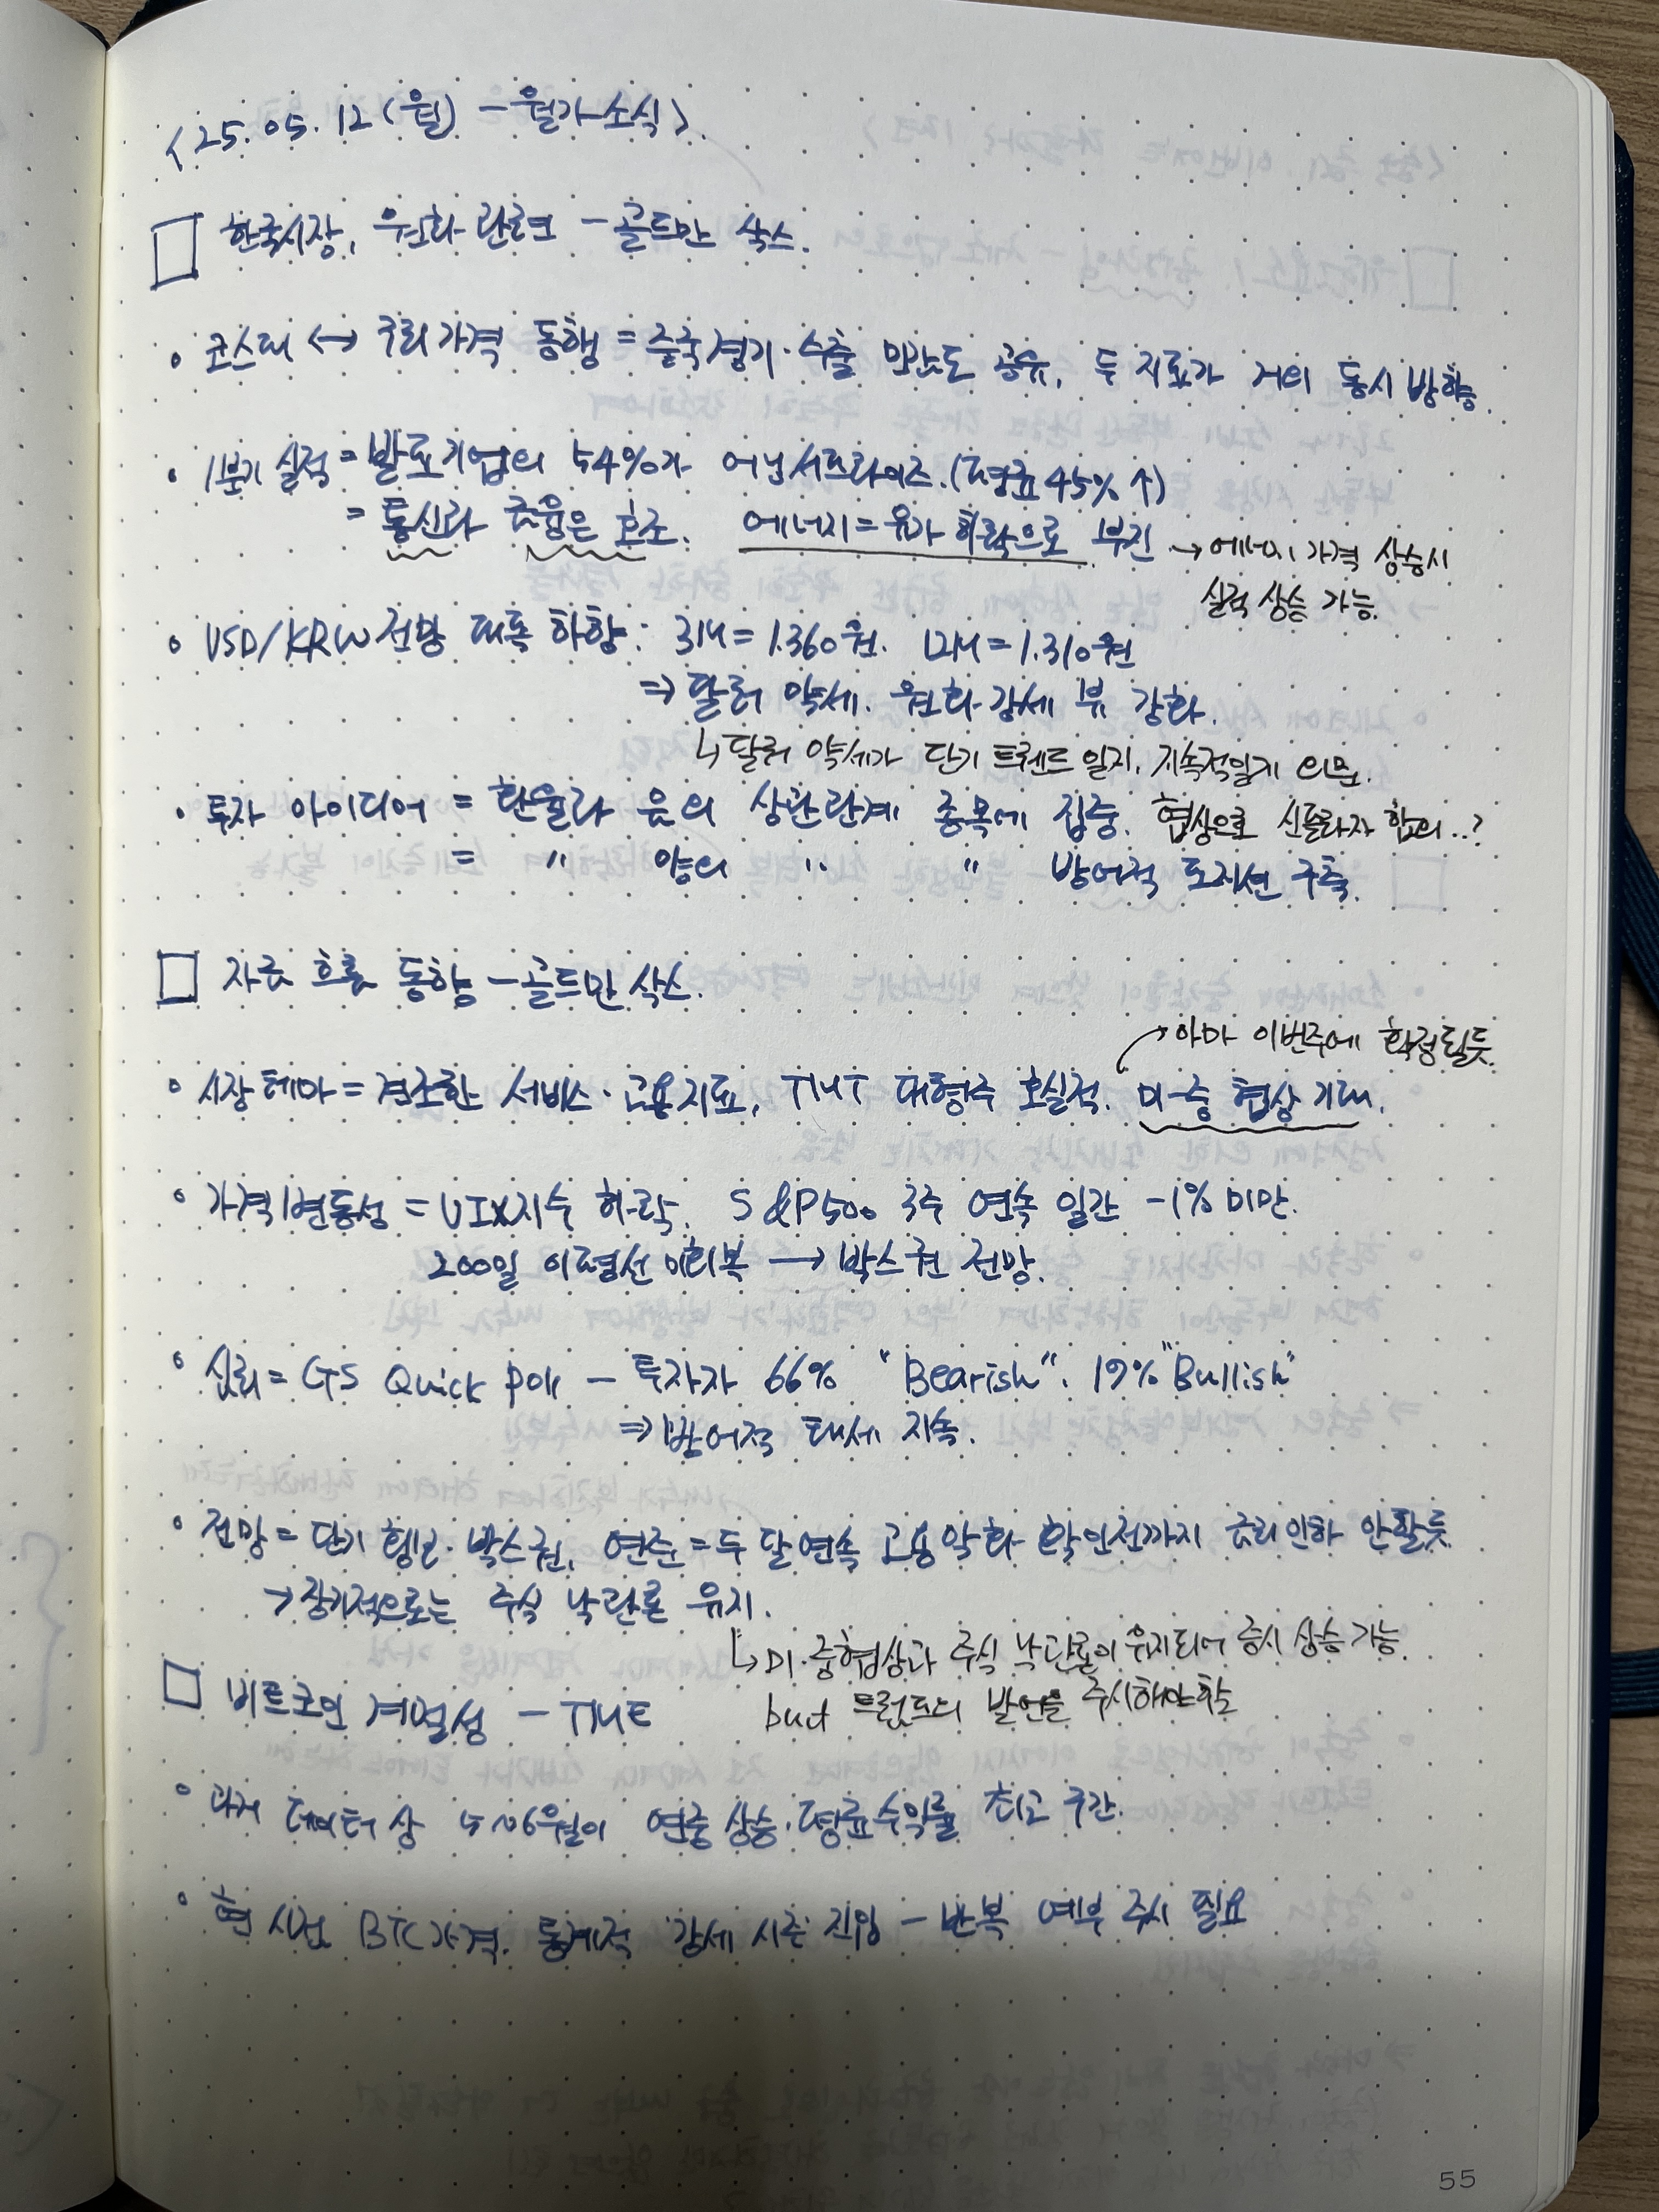 <25.05.12(월) - 월가소식>
□ 한국시장, 원화 관련 - 골드만 삭스.
• 코스피 <-> 구리가격 동행 = 중국경기·수출 민감도 공유, 두 지표가 거의 동시 방향.
• 1분기 실적 = 발표기업의 54%가 어닝서프라이즈. (평균 45% ↑)
= 통신과 금융은 호조. 에너지 = 유가 하락으로 부진 → 에너지 가격 상승시
실적 상승 가능.
• USD/KRW 전망 대폭 하향: 3M = 1.360원. 12M = 1.310원
⇒ 달러 약세. 원화 강세 뷰 강화.
↳ 달러 약세가 단기 트렌드일지, 지속적일지 의문.
• 투자 아이디어 = 환율과 음의 상관관계 종목에 집중. 협상으로 신플라자 합의..?
= " 양의 " " 방어적 포지션 구축.
□ 자금 흐름 동향 - 골드만 삭스.
→ 아마 이번주에 확정될듯
• 시장 테마 = 견조한 서비스·고용지표, TMT 대형주 호실적. 미-중 협상 기대.
• 가격/변동성 = VIX지수 하락. S&P500 3주 연속 일간 -1% 미만.
200일 이평선 미회복 → 박스권 전망.
• 심리 = GS Quick Poll - 투자자 66% "Bearish". 19% "Bullish"
⇒ 방어적 태세 지속.
• 전망 = 단기 횡보·박스권, 연준 = 두 달 연속 고용악화 확인전까지 금리인하 안할듯
→ 장기적으로는 주식 낙관론 유지.
↳ 미·중협상과 주식 낙관론이 유지되어 증시 상승 가능.
but 트럼프의 발언을 주시해야함
□ 비트코인 계절성 - TME
• 과거 데이터상 5~6월이 연중 상승·평균수익률 최고 구간.
• 현 시점 BTC가격. 통계적 강세 시즌 진입 - 반복 여부 주시 필요
55